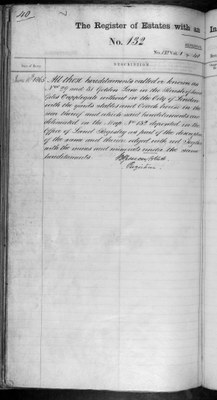 40
The Register of Estates with an
No. 152
Date of Entry.
DESCRIPTION.
All those hereditaments called or known as
Nos. 29 and 30 Golden Lane in the Parish of Saint
Giles Cripplegate without in the City of London
with the yards stables and Coach houses in the
rear thereof and which said hereditaments are
delineated on the Map No. 152 deposited in the
Office of Land Registry as part of the description
of the same and thereon edged with red Together
with the mines and minerals under the same
hereditaments
Registrar